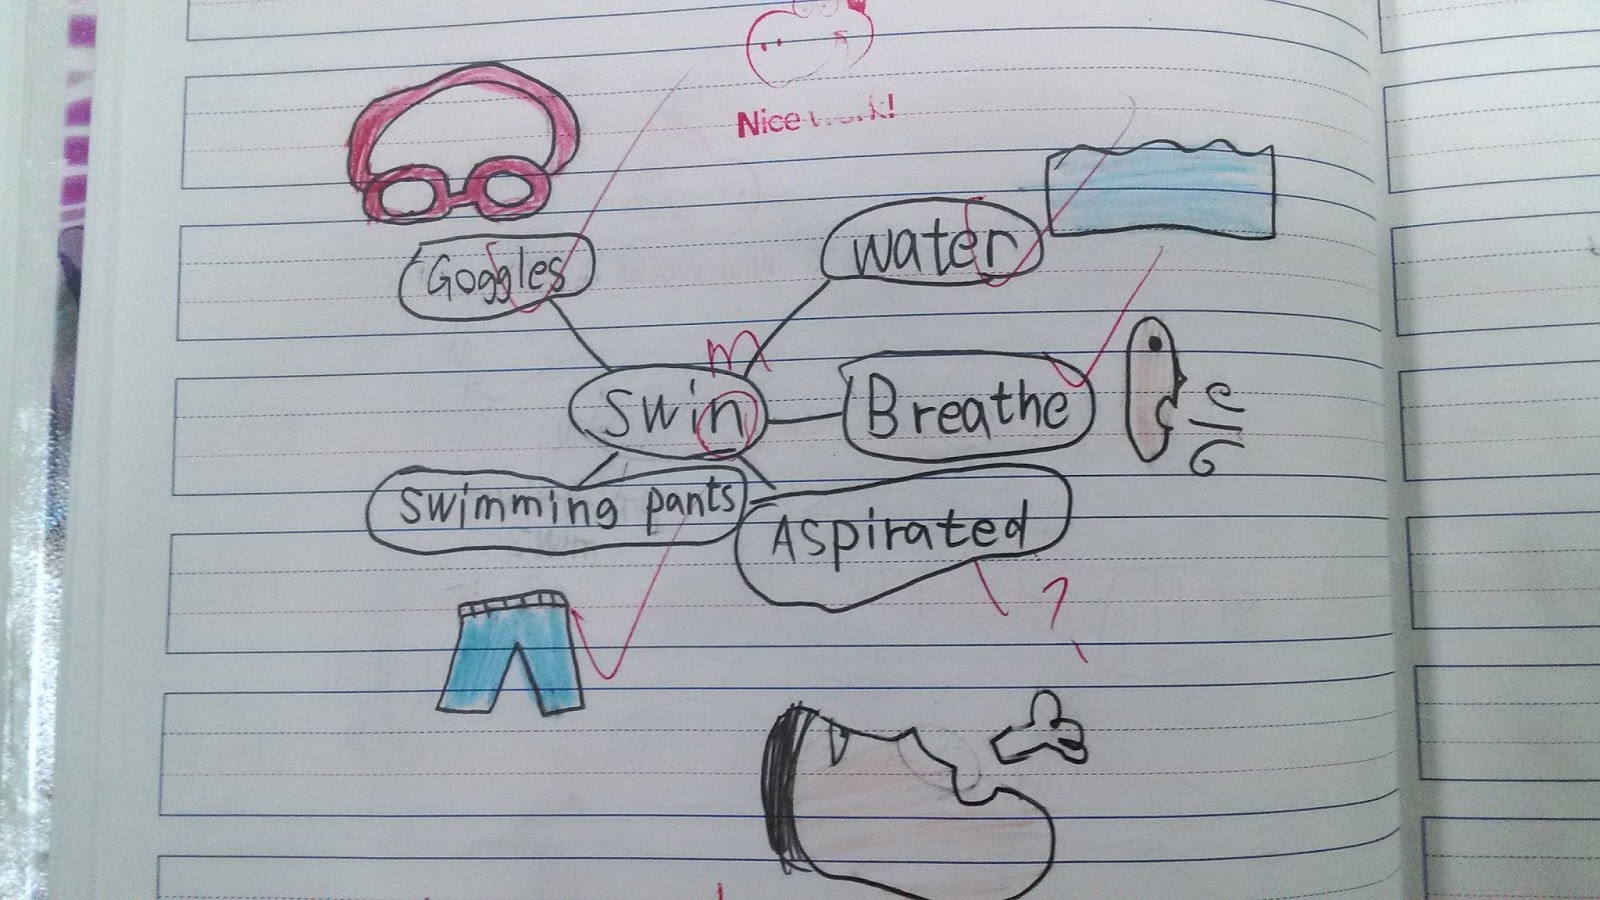 Nice work!
water
Goggles
m
Swin
Breathe
Swimming pants
Aspirated
?